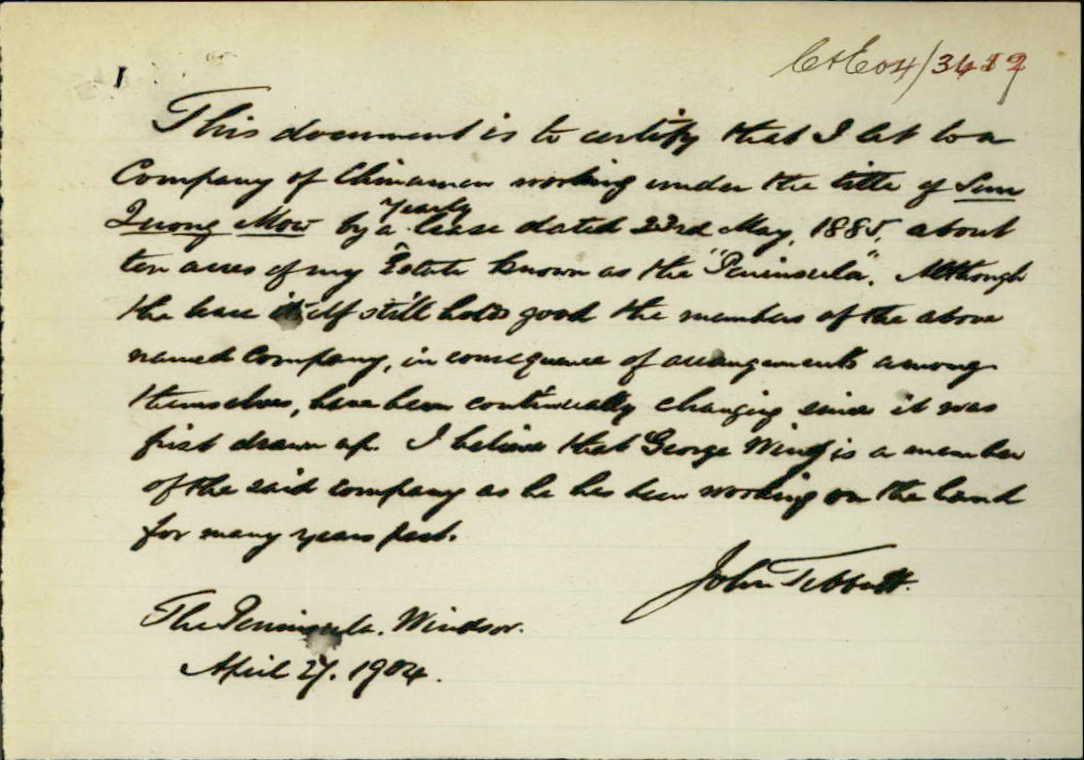 I
C+E04/3412
This document is to certify that I let to a
Company of Chinamen working under the title of Sun
Quong Mow by a yearly lease dated 23rd May, 1885, about
ten acres of my Estate known as the "Peninsula". Although
the lease itself still holds good the members of the above
named Company, in consequence of arrangements among
themselves, have been continually changing since it was
first drawn up. I believe that George Wing is a member
of the said company as he has been working on the land
for many years past.
John Tebbutt.
The Peninsula. Windsor.
April 27. 1904.